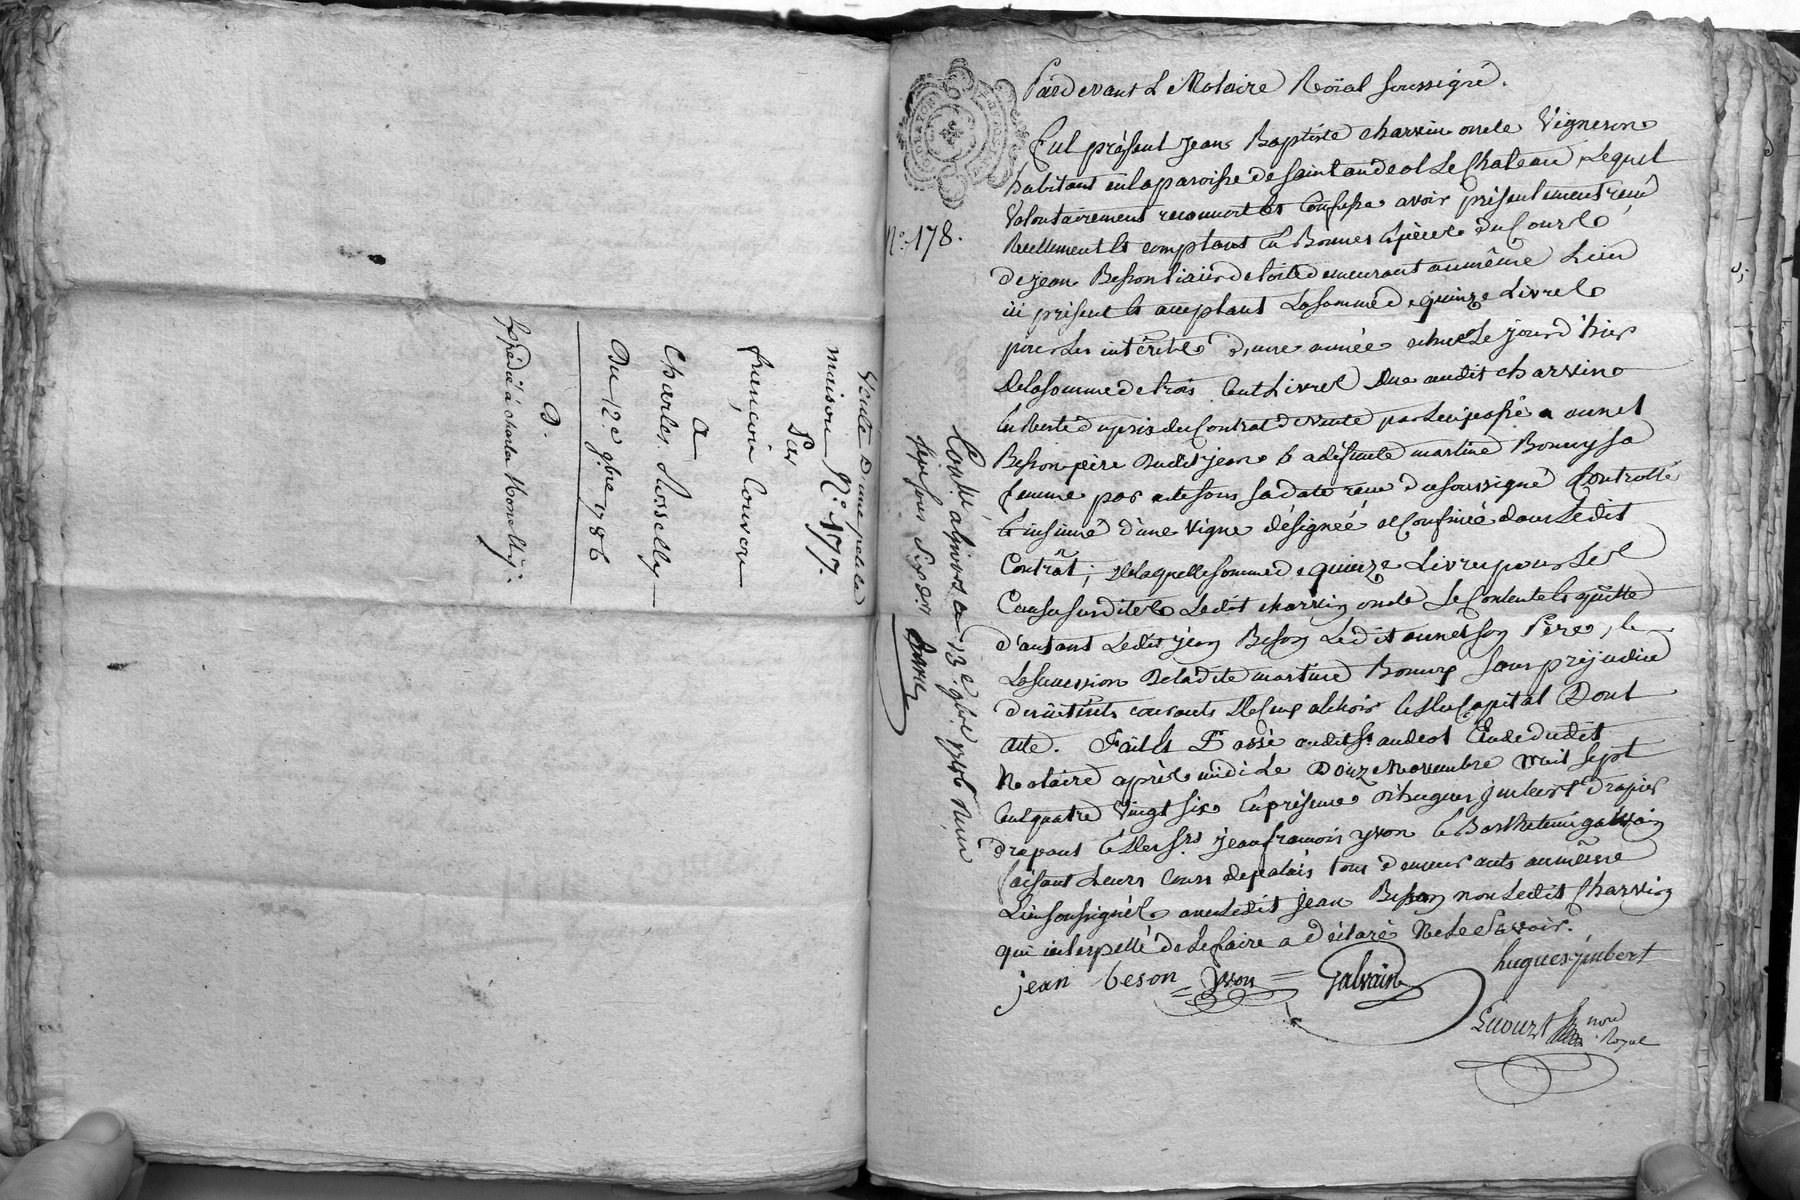 Vente D'une petite
maison N.º 177.
Par
françoin Couvon
A
Charles Rosselly
Du 12.e 9.bre 1786
D.
Expédié à charles
N.º 178.
Pardevant Le Notaire Roïal soussigné.
Fut présent Jean Baptiste charvin oncle Vigneron
habitant en la paroisse de saint andeol Le Chateau, Lequel
Volontairement reconnoit et confesse avoir présentement reçu
Reellement et comptant En Bonnes Espèces du Cours
de jean Besson demeurant au même Lieu
ici présent et acceptant La somme de quinze Livres
pour Les intérêts d'une année échue Le jour d'hier
De la somme de trois Cent Livres Due audit charvin
En Reste du prix du Contrat de vente par Lui passé a annet
Besson père Dudit jean & a défunte martine Bonny sa
femme par acte sous sa date reçu du soussigné Controllé
& insinué d'une vigne désignée et Confinée dans Ledit
Contrat; De laquelle somme de quinze Livres pour Les
Causes susdites Ledit charvin oncle se Contente et quitte
d'autant Ledit jean Besson Ledit annet son Père, &
La succession De ladite martine Bonny sans préjudice
des intérêts courants De ceux a échoir et du Capital Dont
acte. Fait et Passé audit St. andeol Etude dudit
Notaire après midi Le Douze Novembre mil sept
Cent quatre Vingt six En présence d'hugues jmbert Drapier
drapant et des Srs. jean françois yvon & Barthelemi galvain
faisant Leurs Cours de palais tous demeurants au même
Lieu soussignés avec Ledit Jean Besson non Ledit Charvin
qui interpellé de Le faire a déclaré Ne Le Savoir.
jean beson yvon Galvain hugues jmbert
nore Royal
Contllé a givors Le 13.e 9.bre 1786 Reçu